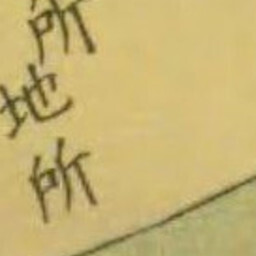 所
地
所